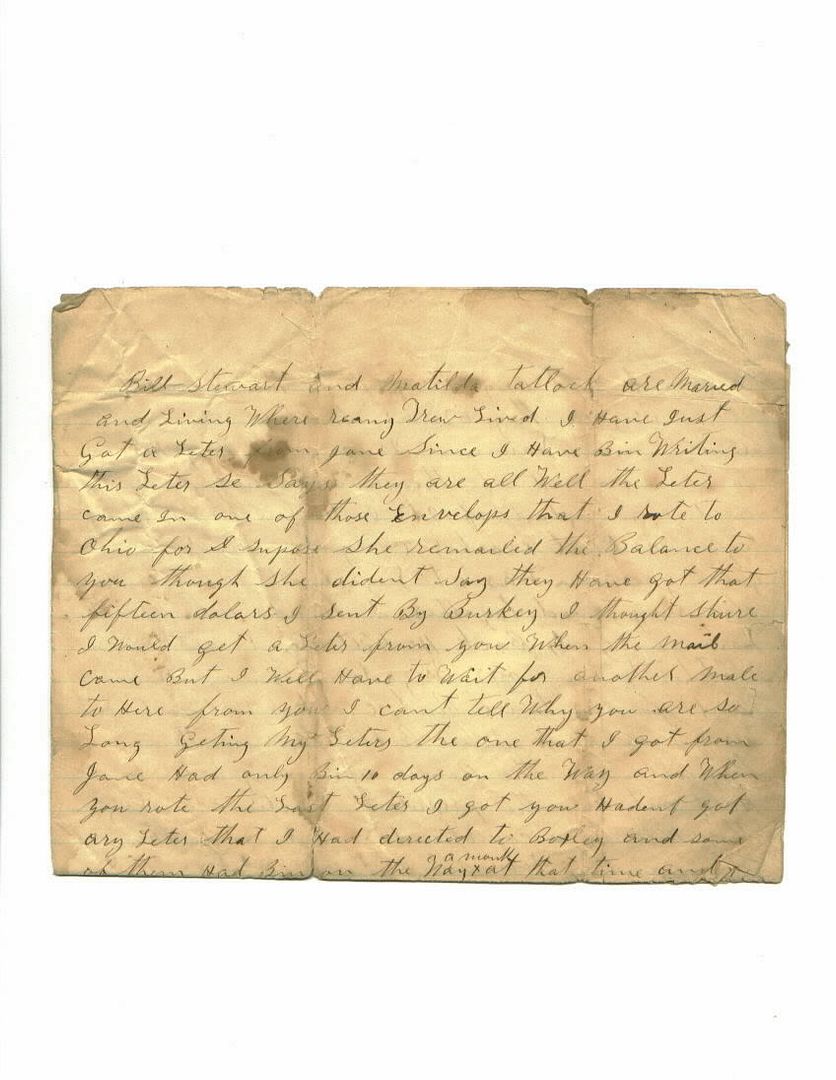 Bill Stewart and Matilda tatlock are Maried
and Living Where Drew Lived I Have Just
Got a Leter from Jane Since I Have Bin Writing
this Leter Se Says they are all Well the Leter
came In one of those Envelops that I rote to
Ohio for I Supose She remailed the Balance to
you though She dident Say they Have got that
fifteen dolars I Sent By Burkey I thought Shure
I Would get a Leter from you When the mail
came But I Will Have to Wait for another male
to Here from you I cant tell Why you are so
Long Geting My Leters the one that I got from
Jane Had only Bin 10 days on the Way and When
you rote the Last Leter I got you Hadent got
ary Leter that I Had directed to Boxley and some
of them Had Bin on the Way a month at that time and